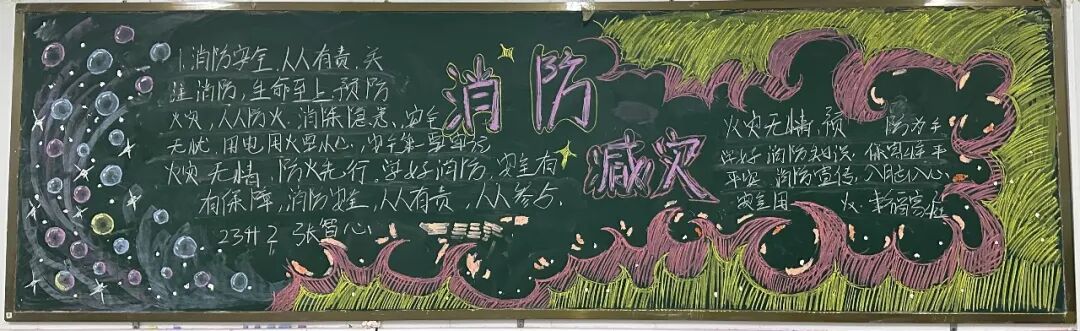 1.消防安全,人人有责,关
注消防,生命至上,预防
火灾,人人防火.消除隐患、安全
无忧.用电用火要小心,安全第一要牢记
火灾无情,防火先行,学好消防,安全有
有保障,消防安全,人人有责,人人参与.
23廾2 张智心
消防
减灾
火灾无情.预 防为主
学好消防知识、保家庭平
平安.消防宣传,入脑入心
安全用 火.